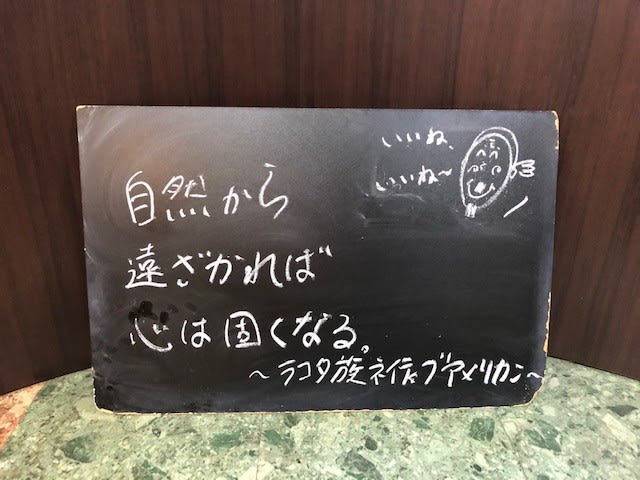 いいね、
いいね～
自然から
遠ざかれば
心は固くなる。
～ラコタ族ネイティブアメリカン～